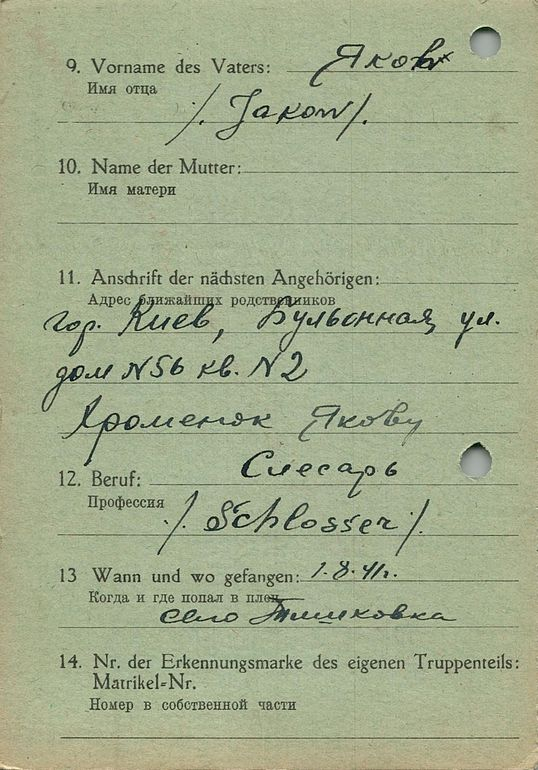 9. Vorname des Vaters: Яков
Имя отца
/. Jakow /.
10. Name der Mutter:
Имя матери
11. Anschrift der nächsten Angehörigen:
Адрес ближайших родственников
гор. Киев, Бульонная ул.
дом N 56 кв. N 2
Хроменюк Якову
12. Beruf: Слесарь
Профессия
/. Schlosser /.
13 Wann und wo gefangen: 1.8.41г.
Когда и где попал в плен
село
14. Nr. der Erkennungsmarke des eigenen Truppenteils:
Matrikel-Nr.
Номер в собственной части